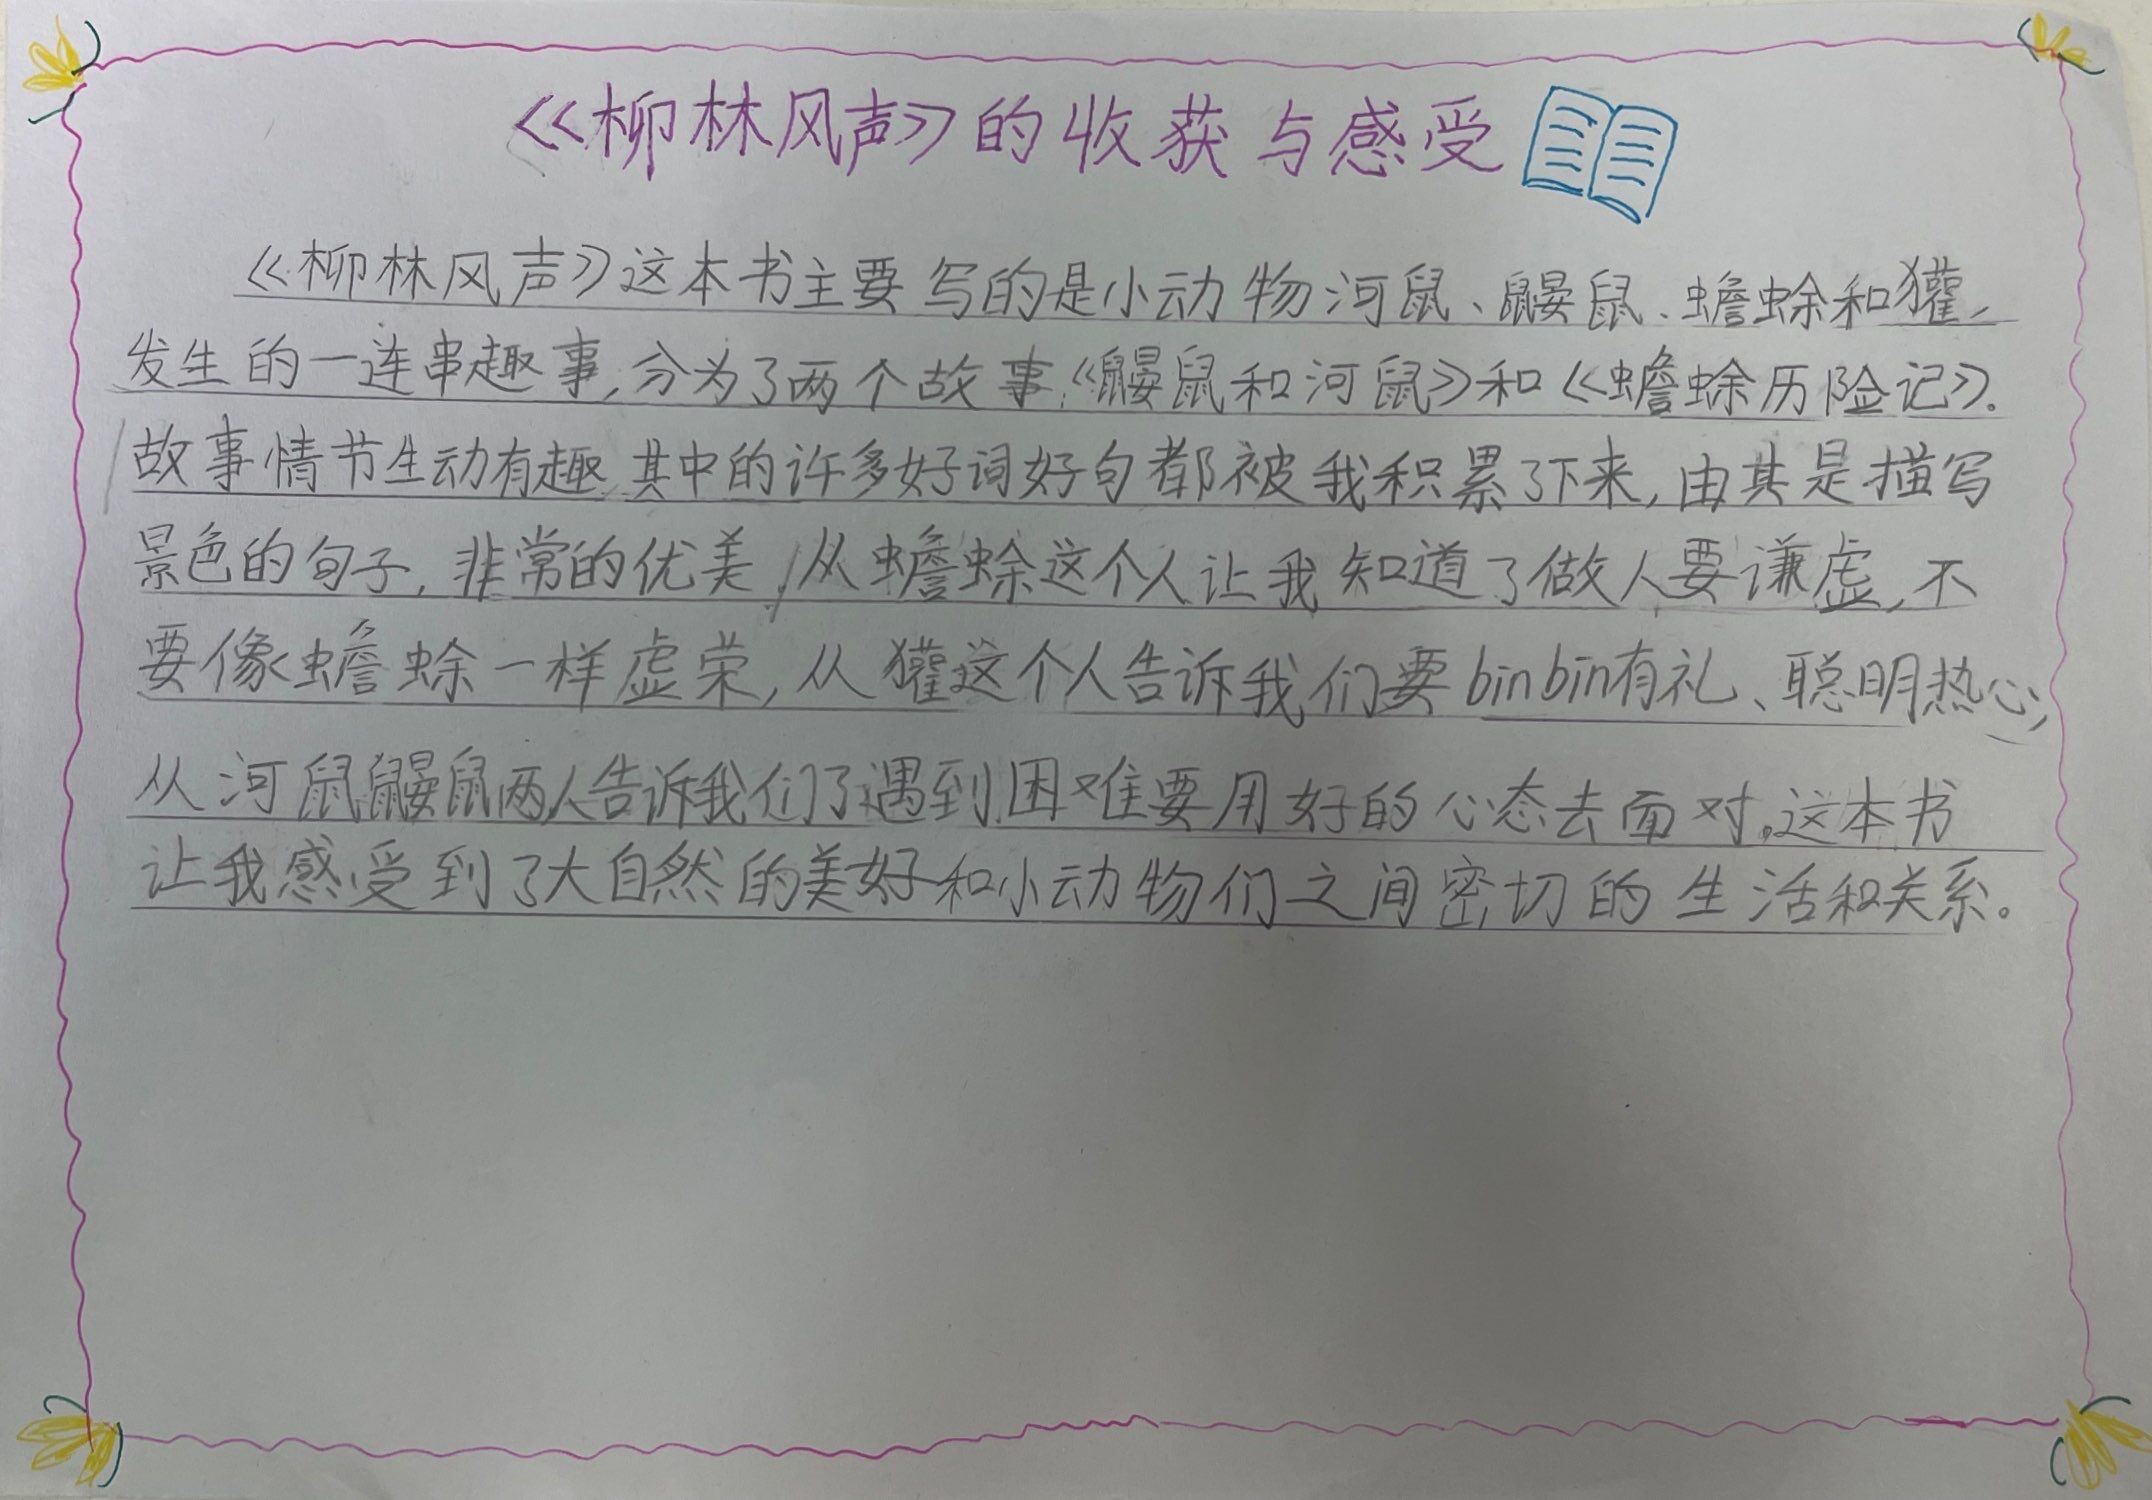 《柳林风声》的收获与感受
《柳林风声》这本书主要写的是小动物河鼠、鼹鼠、蟾蜍和獾,
发生的一连串趣事,分为了两个故事:《鼹鼠和河鼠》和《蟾蜍历险记》.
故事情节生动有趣,其中的许多好词好句都被我积累了下来,由其是描写
景色的句子,非常的优美,从蟾蜍这个人让我知道了做人要谦虚,不
要像蟾蜍一样虚荣,从獾这个人告诉我们要bīn bīn有礼、聪明热心,
从河鼠鼹鼠两人告诉我们了遇到困难要用好的心态去面对。这本书
让我感受到了大自然的美好和小动物们之间密切的生活和关系。